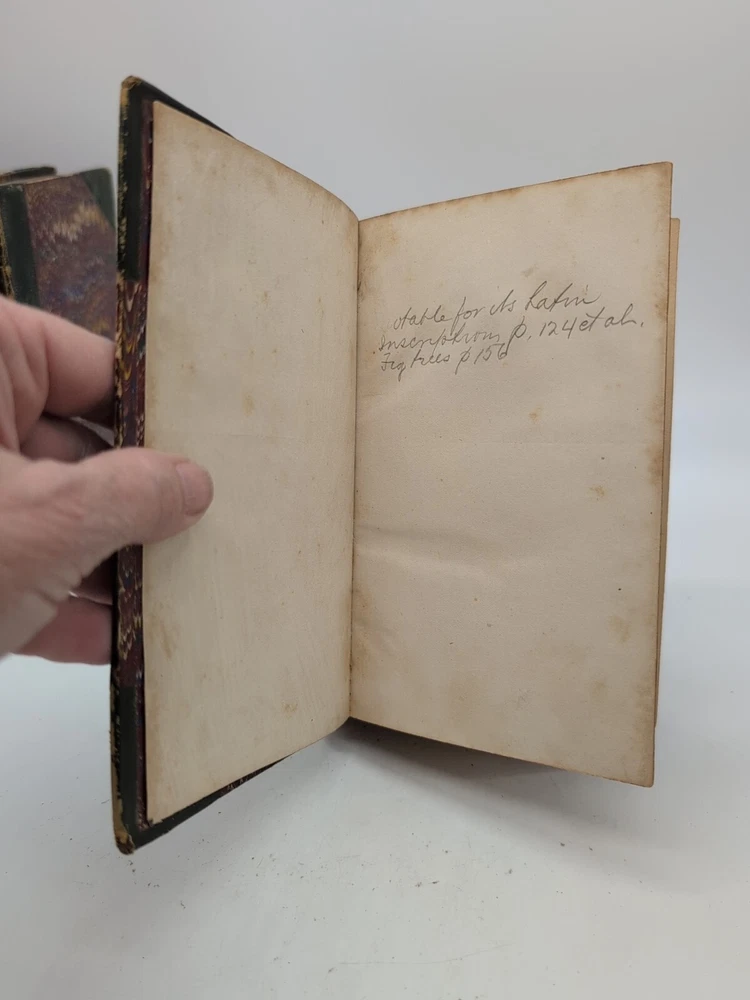 otable for its Latin
Inscriptions p. 124 et al.
Fig trees p 156